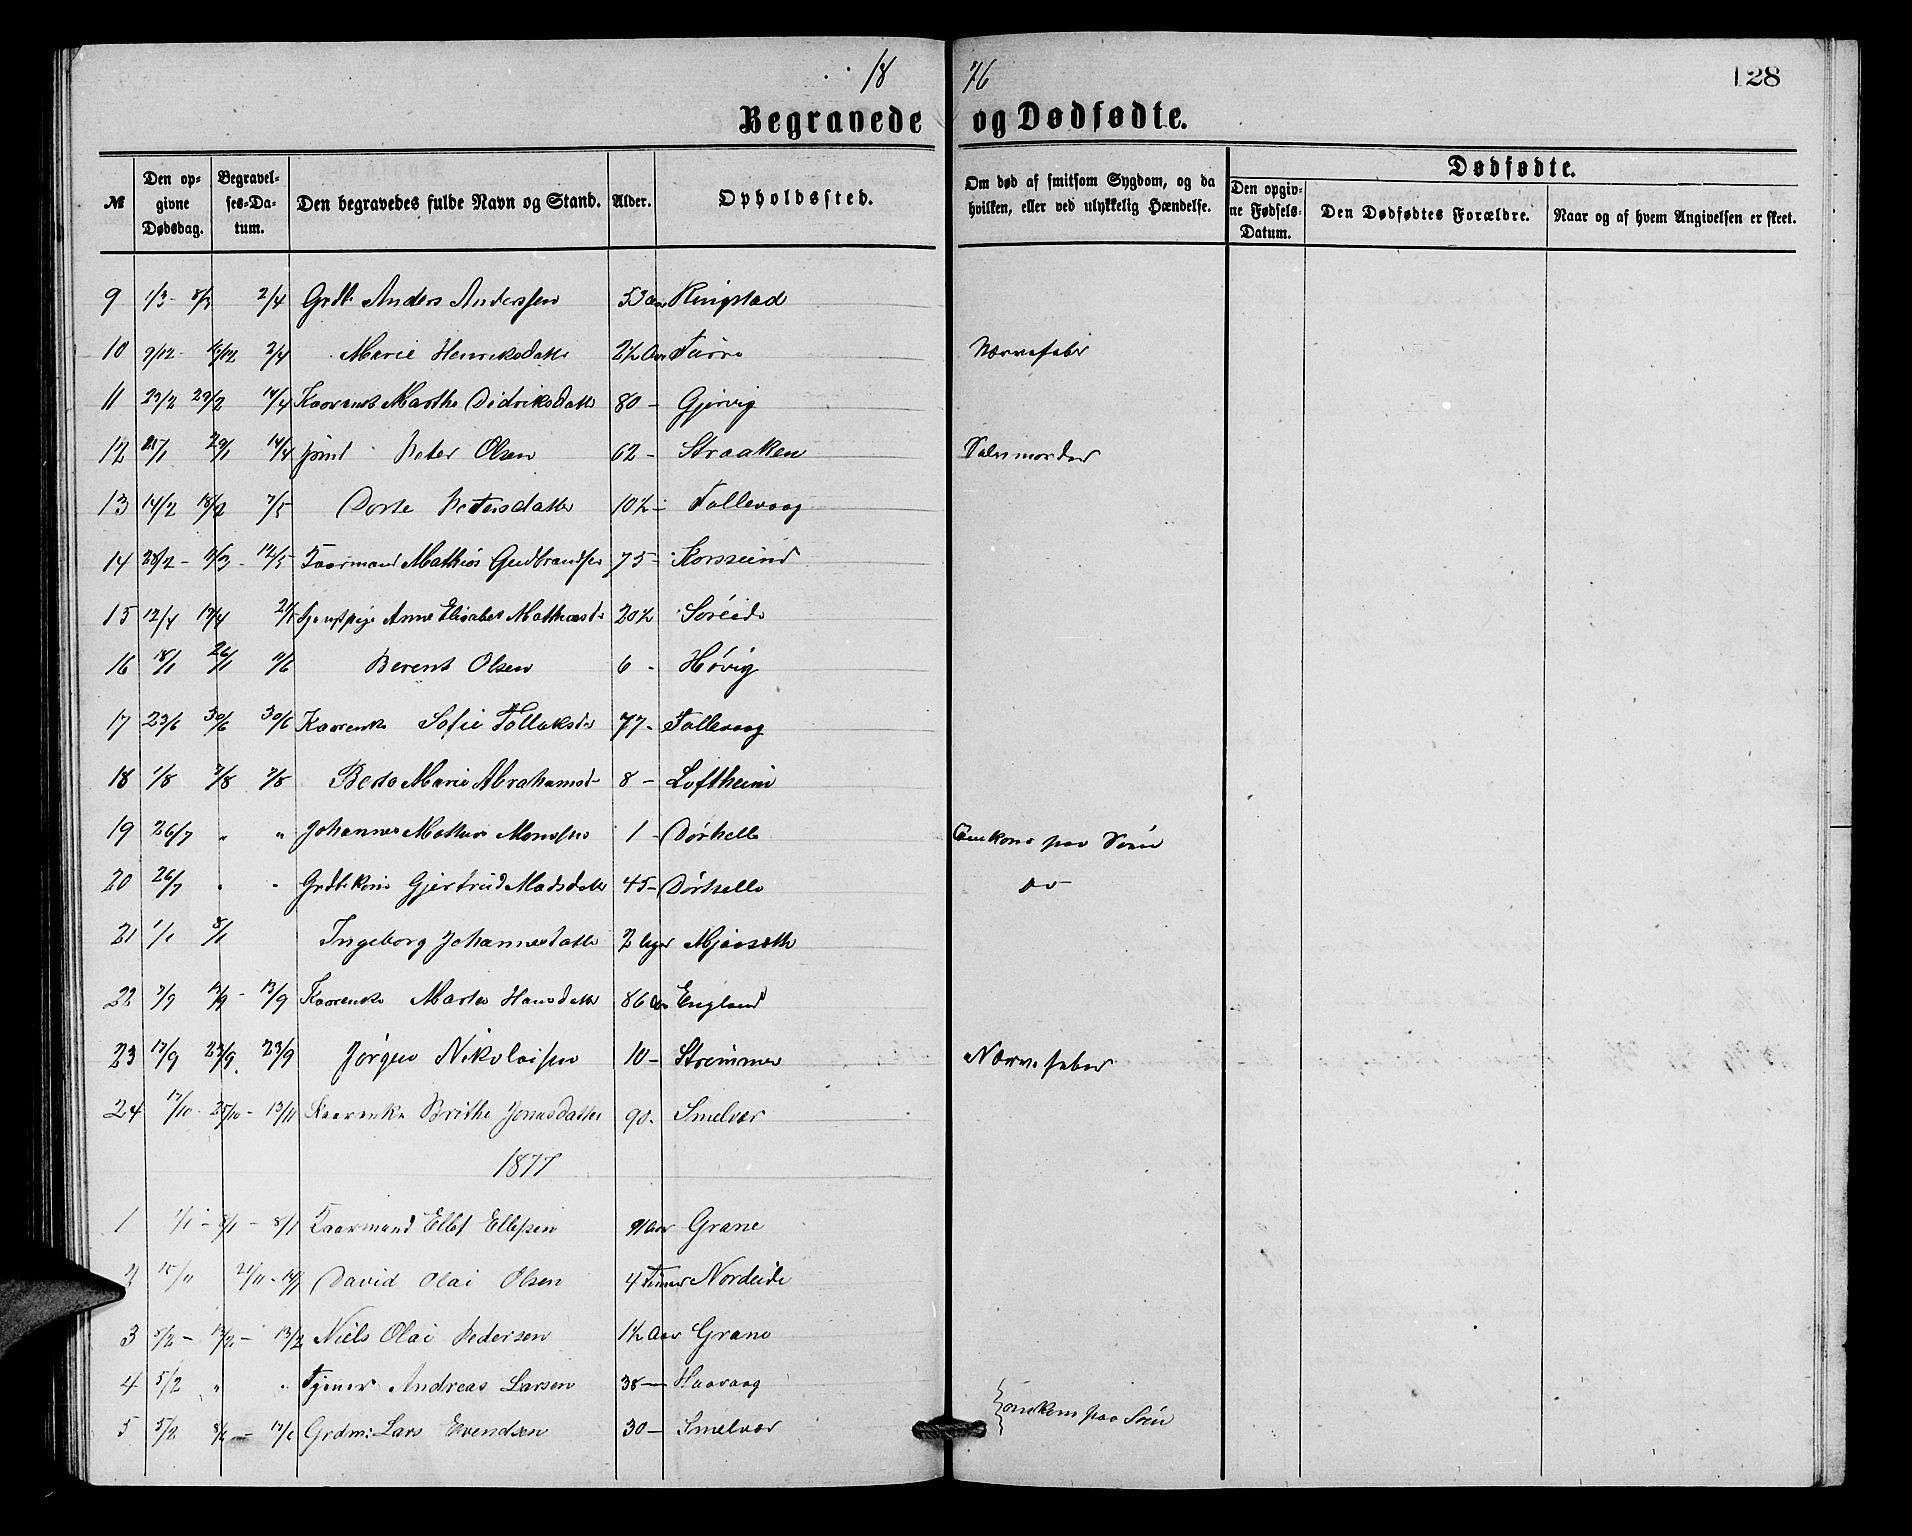 18 76 128
Begravede og Dødfødte.
Dødfødte.
№ Den opgivne Dødsdag. Begravelses-Datum. Den begravedes fulde Navn og Stand. Alder. Opholdssted. Om død af smitsom Sygdom, og da hvilken, eller ved ulykkelig Hændelse. Den opgivne Fødsels-Datum. Den Dødfødtes Forældre. Naar og af hvem Angivelsen er skeet.
9 1/3 - 8/3 2/4 Grdb. Anders Anderssen 53 Aar Ringstad
10 9/12 - 16/12 2/4 Marie Henriksdatter 2½ Aar Nervefeber
11 23/2 29/2 17/4 Marthe Didriksdatter 80 - Gjervig
12 25/1 29/1 14/4 Peter Olsen 62 - Straaken Selvmorder
13 14/2 18/2 7/5 Dorte Petersdatter 10½ - Tollevaag
14 28/2 - 5/3 - 12/5 Kaarmand Mathias Gudbrandsen 75 - Korssund
15 12/4 17/4 21/ Anne Elisabet 20½ Søreide
16 18/1 26/1 11/6 Berent Olsen 6 - Høvig
17 23/6 30/6 30/6 Kaarenke Sofie Tollaksd 77 - Tollevaag
18 1/8 7/8 7/8 Marie Abrahamsd 8 - Loftheim
19 26/7 " " Johannes Monssen 1 - Dørhelle Omkom paa Søen
20 26/7 " " Grdbkone Gjertrud Madsdatter 45 - Dørhelle do
21 1/1 8/1 Ingeborg Johannesdatter 2 Uger Mjaaseth
22 7/9 13/9 - 13/9 Kaarenke Marta Hansdatter 86 Aar England
23 17/9 23/9 23/9 Jørgen Nikolaisen 10 - Strømmen Nervefeber
24 17/10 - 25/10 - 13/11 Kaarenke Brithe Jonasdatter 90. Smelvær
1877
1 1/1 - 8/1 - 8/1 Kaarmand Ellef Ellefsen 91 Aar Grane
2 15/11 21/11 - 14/1 David Olai Olsen 4 Timer Nordeide
3 5/2 - 13/2 - 13/2 Niels Olai Pedersen 1½ Aar Grane
4 5/2 " " Tjener Andreas Larsen 38 - Haavaag
5 5/2 8/6 - 17/6 Grdm: Lars Evendsen 30 - Smelvær omkom paa Søen